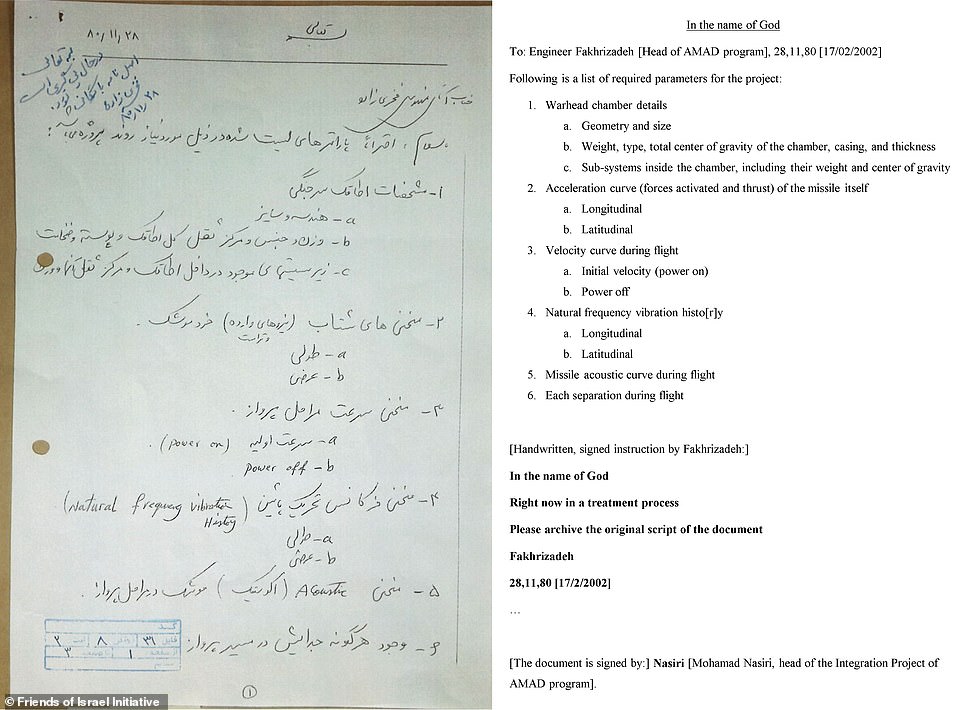 ۸۰/۱۱/۲۸
بسمه تعالی
بسمه تعالی
درحال پی گیری است
اصل نامه بایگانی شود
فخری زاده
۸۰/۱۱/۲۸
جناب آقای مهندس فخری زاده
سلام، احتراماً پارامترهای لیست شده در ذیل مورد نیاز روند پروژه می باشد:
۱- مشخصات اطاقک سرجنگی
a- هندسه و سایز
b- وزن و جنس و مرکز ثقل کل اطاقک و پوسته و ضخامت
c- زیر سیستمهای موجود در داخل اطاقک و مرکز ثقل آنها و وزن
۲- منحنی های شتاب (نیروهای وارده) خود موشک.
a- طولی
b- عرضی
۳- منحنی سرعت مراحل پرواز.
a- سرعت اولیه (power on).
b- power off
۴- منحنی فرکانس تحریک پائین (Natural frequency vibration
History)
a- طولی
b- عرضی
۵- منحنی Acoustic (اکوستیک) موشک در مراحل پرواز.
۶- وجود هرگونه جدایش در مسیر پرواز
۱
© Friends of Israel Initiative
In the name of God
To: Engineer Fakhrizadeh [Head of AMAD program], 28,11,80 [17/02/2002]
Following is a list of required parameters for the project:
1. Warhead chamber details
a. Geometry and size
b. Weight, type, total center of gravity of the chamber, casing, and thickness
c. Sub-systems inside the chamber, including their weight and center of gravity
2. Acceleration curve (forces activated and thrust) of the missile itself
a. Longitudinal
b. Latitudinal
3. Velocity curve during flight
a. Initial velocity (power on)
b. Power off
4. Natural frequency vibration histo[r]y
a. Longitudinal
b. Latitudinal
5. Missile acoustic curve during flight
6. Each separation during flight
[Handwritten, signed instruction by Fakhrizadeh:]
In the name of God
Right now in a treatment process
Please archive the original script of the document
Fakhrizadeh
28,11,80 [17/2/2002]
…
[The document is signed by:] Nasiri [Mohamad Nasiri, head of the Integration Project of
AMAD program].